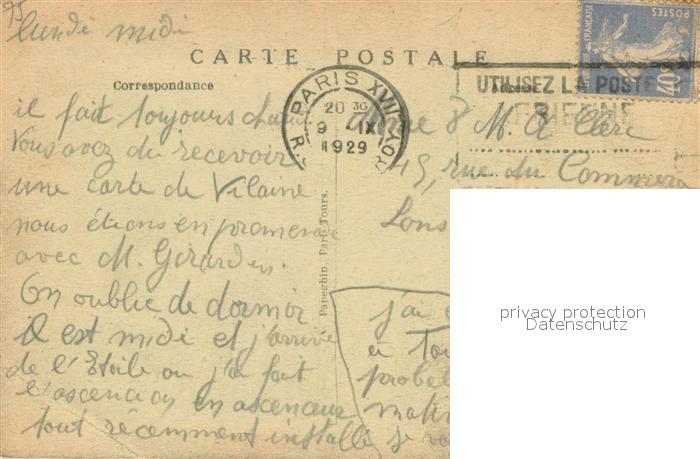 75
lundi midi
CARTE POSTALE
Correspondance
il fait toujours chaud
Vous avez du recevoir
une carte de Vilaine
nous étions en promenade
avec M. Girardin.
On oublie de dormir
il est midi et j'arrive
de l'Etoile ou j'ai fait
l'ascension en ascenseur
tout récemment installé
Papeghin, Paris-Tours.
PARIS XVII
20 30
9 IX
1929
POSTES
FRANÇAISE
40c
UTILISEZ LA POSTE
AERIENNE
Adresse
& M. A Clerc
45, rue du Commerce
Lons
j'ai
à Tou
probab
matin
je va
privacy protection
Datenschutz